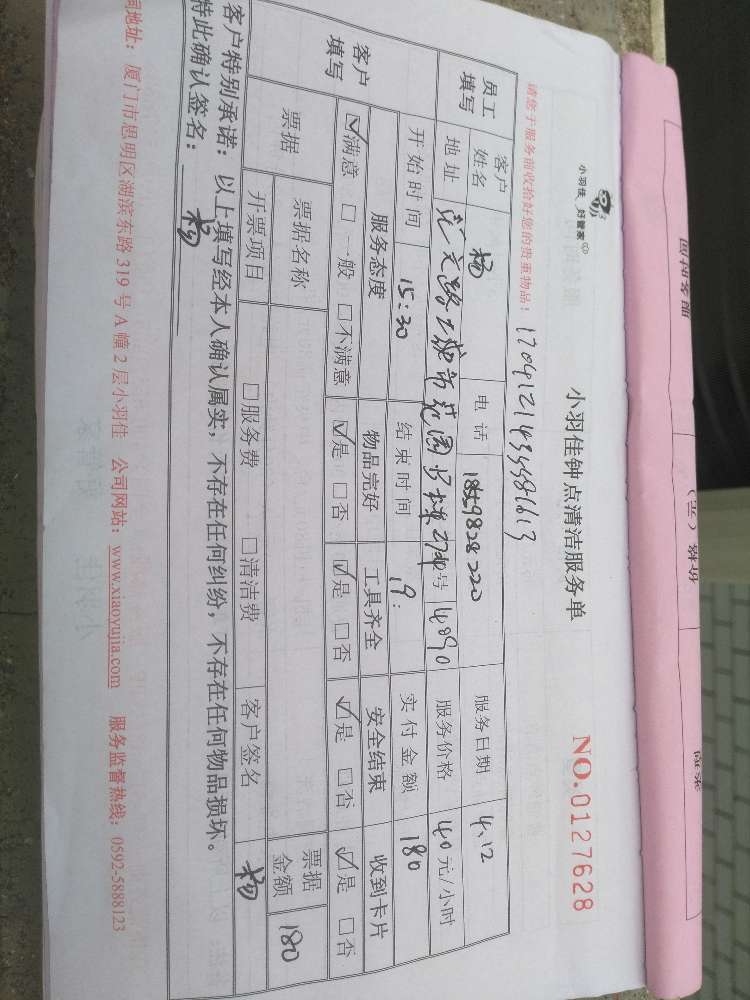 小羽佳 好管家
小羽佳钟点清洁服务单
NO.0127628
请您于服务前收拾好您的贵重物品:
员工填写
客户姓名 杨 电话 服务日期 4.12
地址 服务价格 40元/小时
开始时间 15:30 结束时间 19: 实付金额 180
客户填写
服务态度 物品完好 工具齐全 安全结束 收到卡片
☑满意 □一般 □不满意 ☑是 □否 ☑是 □否 ☑是 □否 ☑是 □否
票据 票据名称 票据金额 180
开票项目 □服务费 □清洁费 客户签名 杨
客户特别承诺:以上填写经本人确认属实,不存在任何纠纷,不存在任何物品损坏。
特此确认签名: 杨
司地址:厦门市思明区湖滨东路319号A幢2层小羽佳 公司网站:www.xiaoyujia.com 服务监督热线:0592-5888123